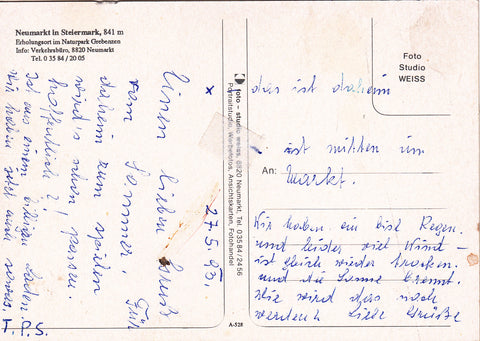 Neumarkt in Steiermark, 841 m
Erholungsort im Naturpark Grebenzen
Info: Verkehrsbüro, 8820 Neumarkt
Tel. 0 35 84 / 20 05
x 27.5.95.
Einen lieben Gruß
vom Sommer. Für
daheim zum spielen
wird's schon passen.
hoffentlich?!
Ist aus einem billigen Laden.
Wir haben jetzt auch sowas.
T.P.S.
foto - studio weiss, 8820 Neumarkt, Tel. 0 35 84 / 24 56
Portraitstudio, Werbefotos, Ansichtskarten, Fotohandel
Foto
Studio
WEISS
das ist daheim
ist mitten im
An: Markt.
Wir haben ein bisl Regen.
und leider viel Wind –
ist gleich wieder trocken.
und die Sonne brennt.
Wie wird das noch
werden? Liebe Grüße
A-528